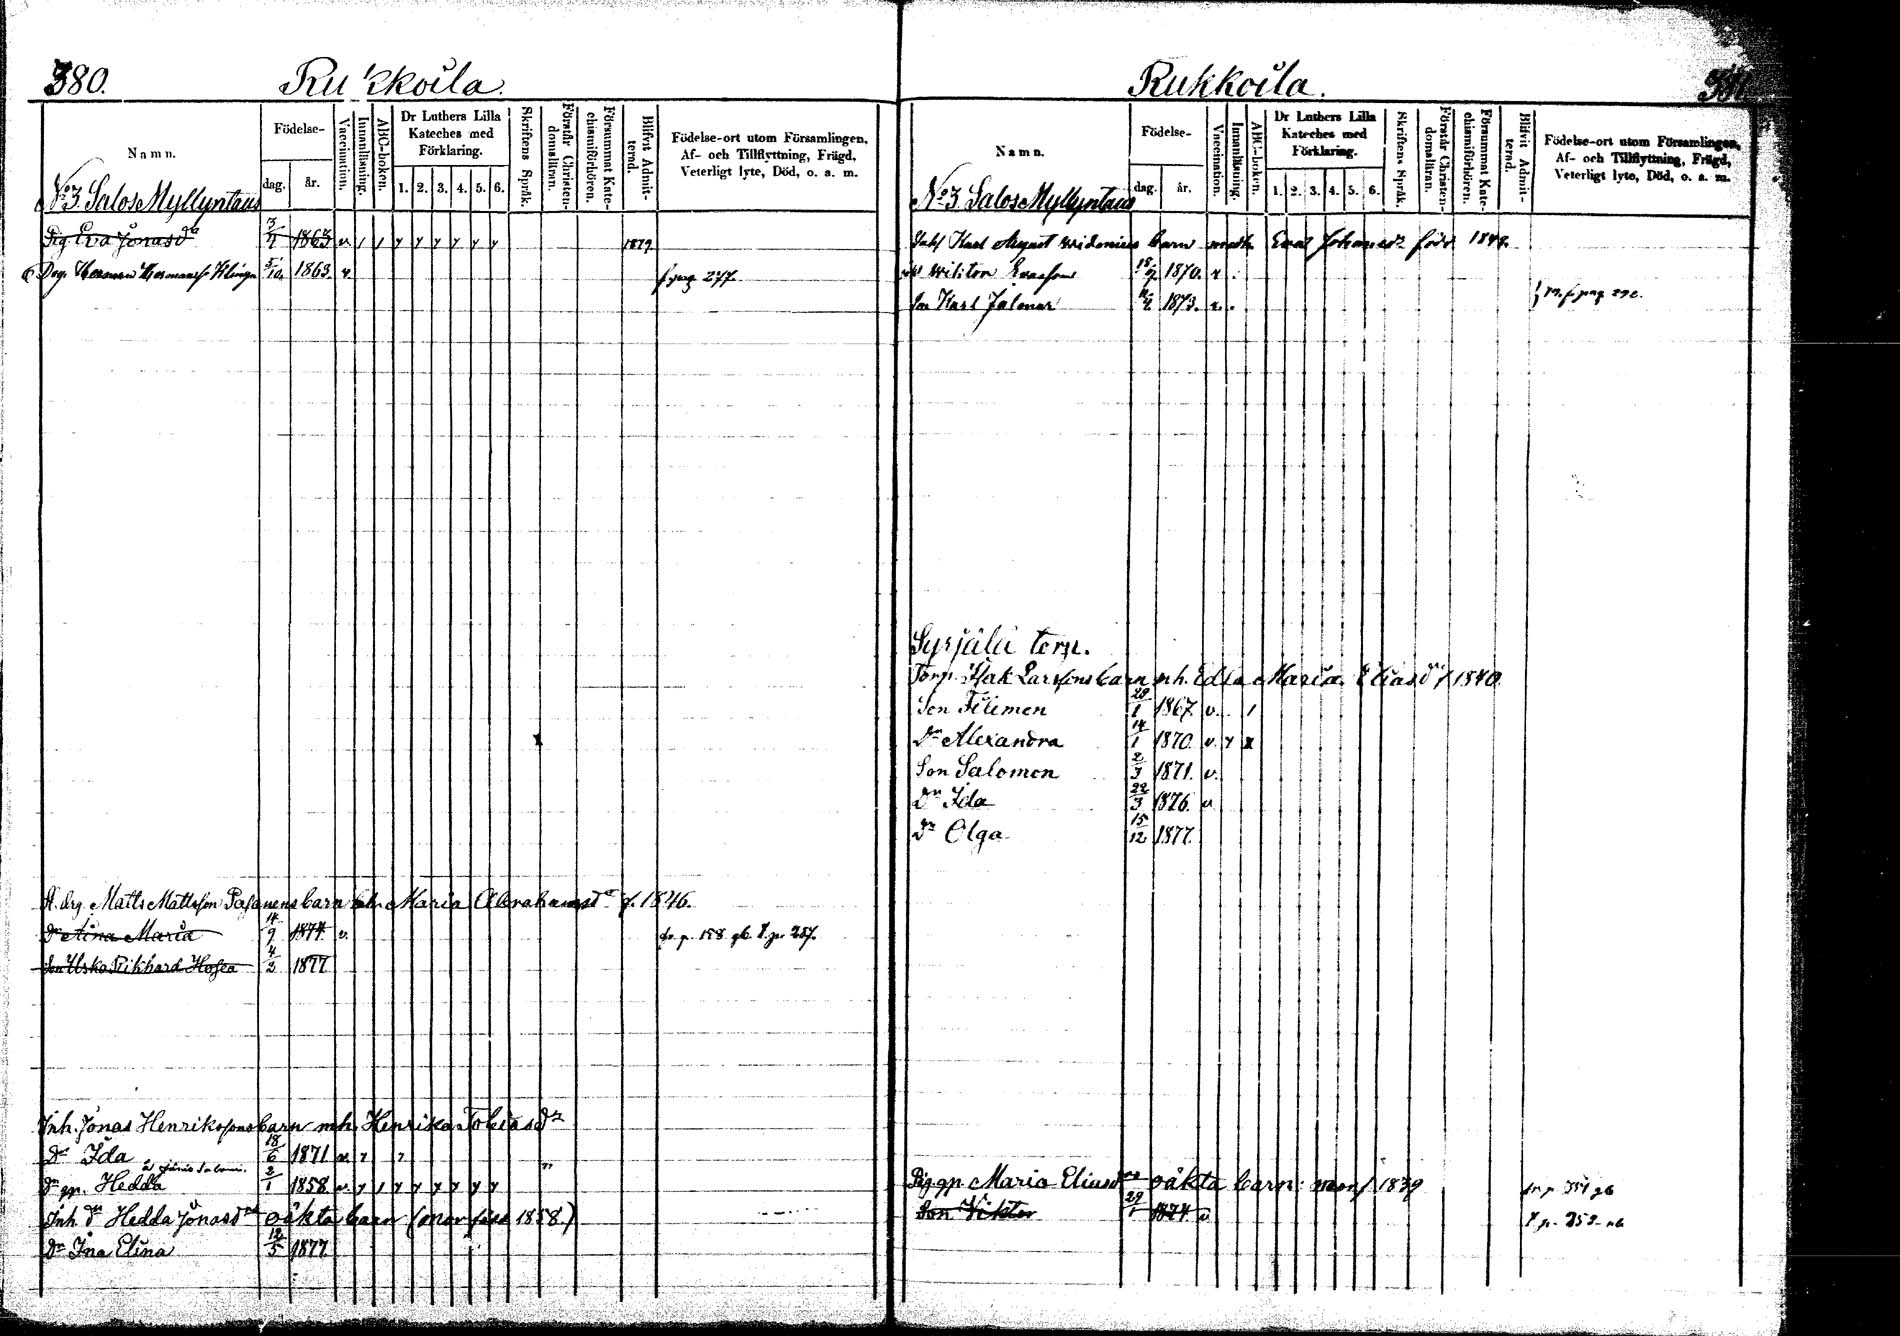 380.
Rukkoila.
Namn.
Födelse-
dag.
år.
Vaccination.
Innanläsning.
ABC-boken.
Dr Luthers Lilla
Kateches med
Förklaring.
1. 2. 3. 4. 5. 6.
Skriftens Språk.
Förstår Christen-
domsläran.
Försummat Kate-
chismiförhören.
Blifvit Admit-
terad.
Födelse-ort utom Församlingen,
Af- och Tillflyttning, Frägd,
Veterligt lyte, Död, o. a. m.
No 3. Salos Myllyntaus
Pig. Eva Jonasdr 3/4 1863 v 1879
Drg. Herman Hermansson 5/10 1863. v. f. pag 277.
A. drg. Matts Mattsson Pasanens barn mh. Maria Abrahamsdr f. 1846.
Dr Aina Maria 14/9 1874 v. fr. p. 158 gb. T. p. 257.
Son Usko Rikhard Hosea 4/3 1877
Inh. Jonas Henrikssons barn mh. Henrika Tobiasdr
Dr Ida 18/6 1871 v.
Dr gp. Hedda 2/1 1858. v.
Inh. dr Hedda Jonasdrs oäkta barn (mor född 1858.)
Dr Ina Elina 12/5 1877.
Rukkoila.
Namn.
Födelse-
dag.
år.
Vaccination.
Innanläsning.
ABC-boken.
Dr Luthers Lilla
Kateches med
Förklaring.
1. 2. 3. 4. 5. 6.
Skriftens Språk.
Förstår Christen-
domsläran.
Försummat Kate-
chismiförhören.
Blifvit Admit-
terad.
Födelse-ort utom Församlingen,
Af- och Tillflyttning, Frägd,
Veterligt lyte, Död, o. a. m.
No 3. Salos Myllyntaus
Karl August Widenius barn med Eva Johansdr född
Wiktor 18/9 1870. v.
Son Karl Jalmar 1873. v.
Syrjälä torp.
Torp. Isak Larssons barn mh. Edla Maria Eliasdr f 1840.
Son Filemon 20/1 1867. v.
Dr Alexandra 14/1 1870. v.
Son Salomon 2/3 1871. v.
Dr Ida 22/3 1876. v
Dr Olga 15/12 1877.
Pig. gp Maria Eliasdrs oäkta barn: mor f 1839
Son Viktor 29/1 1874 v